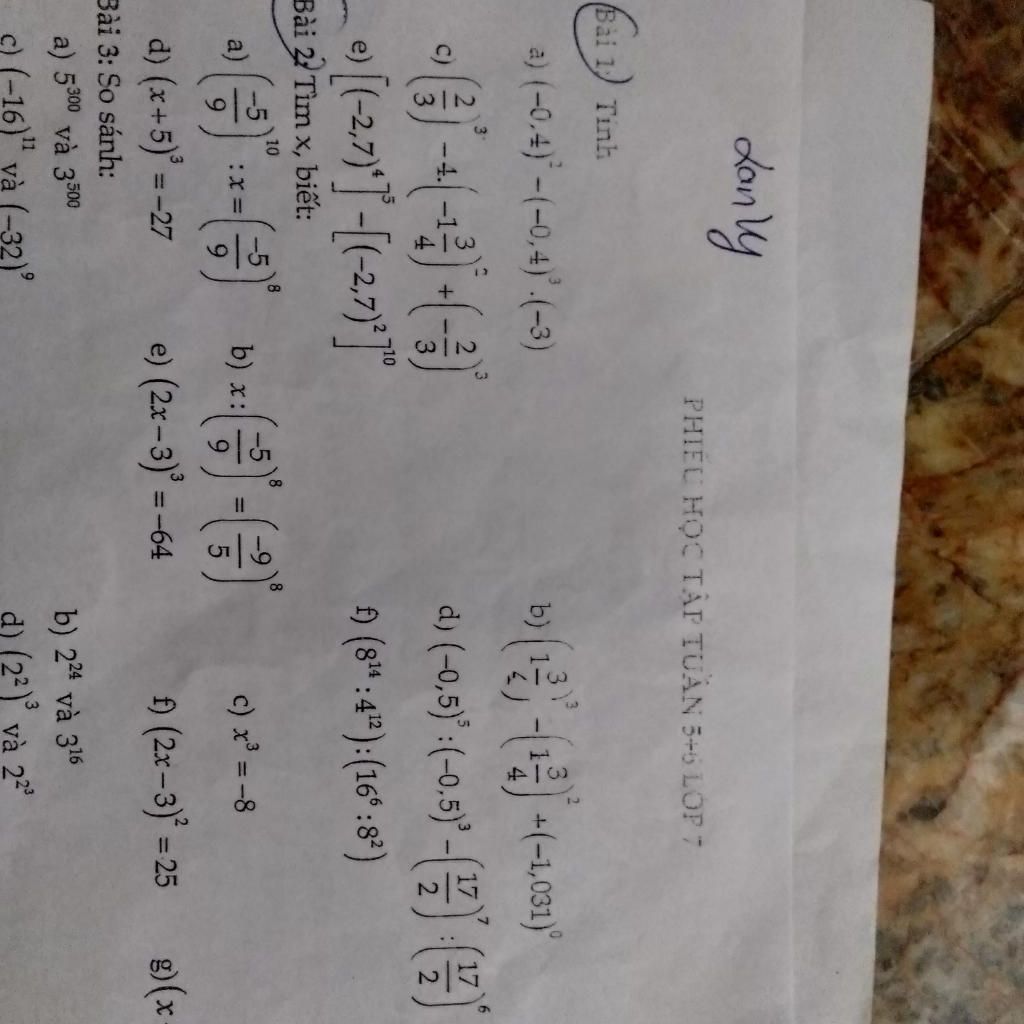 Lan Vy
PHIẾU HỌC TẬP TUẦN 5+6 LỚP 7
Bài 1: Tính
a) (−0,4)² − (−0,4)³ . (−3) b) (1 3/4)³ − (1 3/4)² + (−1,031)⁰
c) (2/3)³ − 4.(−1 3/4)² + (−2/3)³ d) (−0,5)⁵ : (−0,5)³ − (17/2)⁷ : (17/2)⁶
e) [(−2,7)⁴]⁵ − [(−2,7)²]¹⁰ f) (8¹⁴ : 4¹²) : (16⁶ : 8²)
Bài 2: Tìm x, biết:
a) (−5/9)¹⁰ : x = (−5/9)⁸ b) x : (−5/9)⁸ = (−9/5)⁸ c) x³ = −8
d) (x + 5)³ = −27 e) (2x − 3)³ = −64 f) (2x − 3)² = 25 g) (x
Bài 3: So sánh:
a) 5³⁰⁰ và 3⁵⁰⁰ b) 2²⁴ và 3¹⁶
c) (−16)¹¹ và (−32)⁹ d) (2²)³ và 2^(2³)